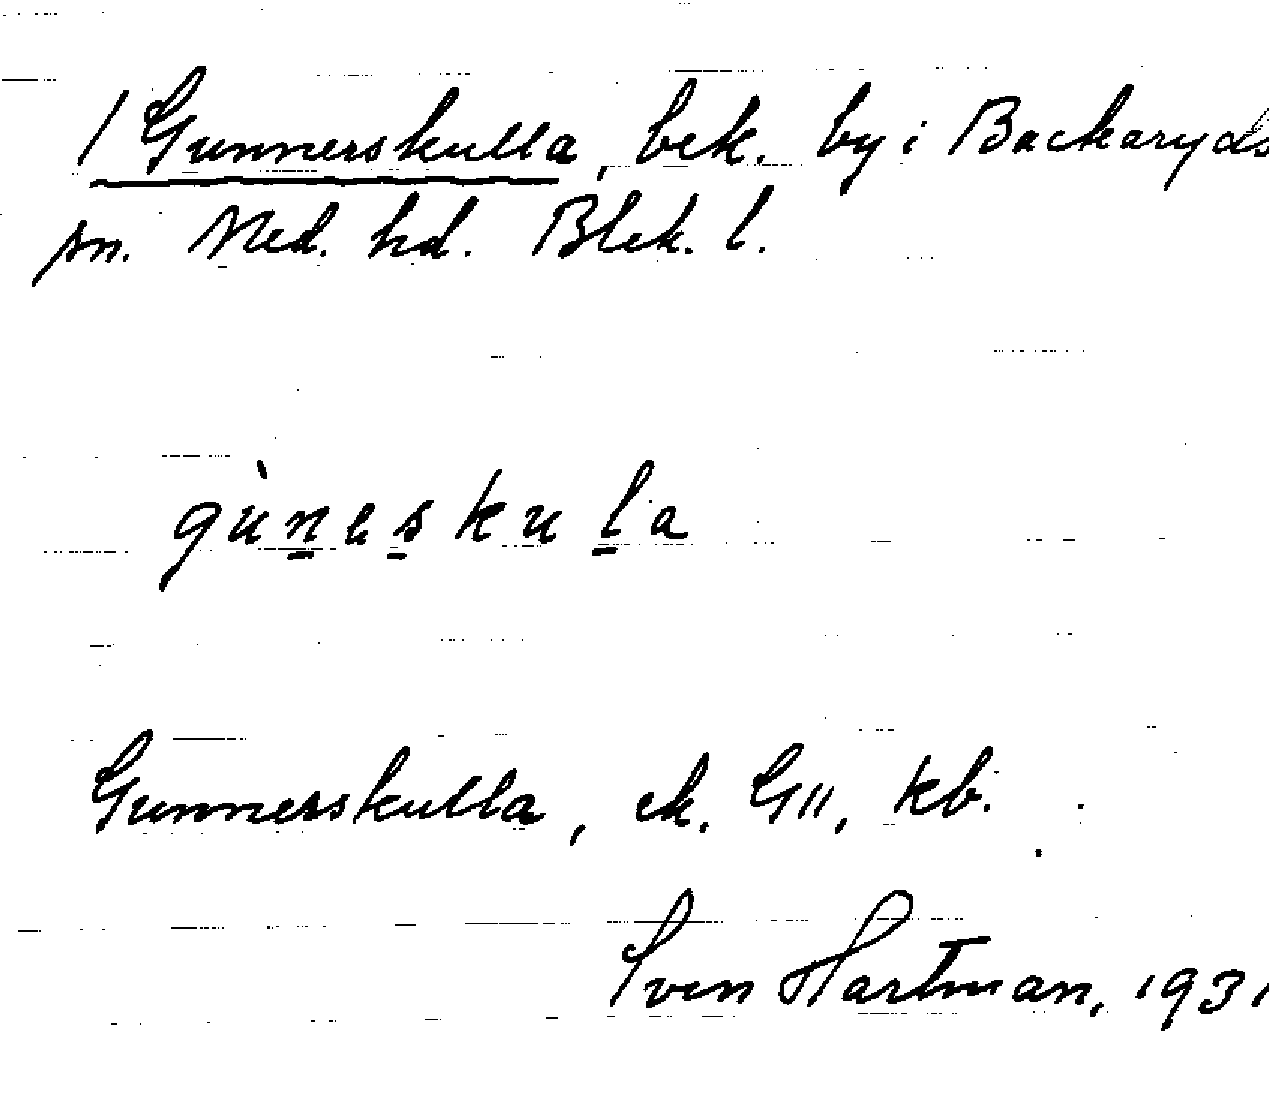 / Gunnerskulla, bek. by i Backaryds
sn. Med. hd. Blek. l.
gùneskula
Gunnerskulla, ek. G11, kb.
Sven Hartman, 1931